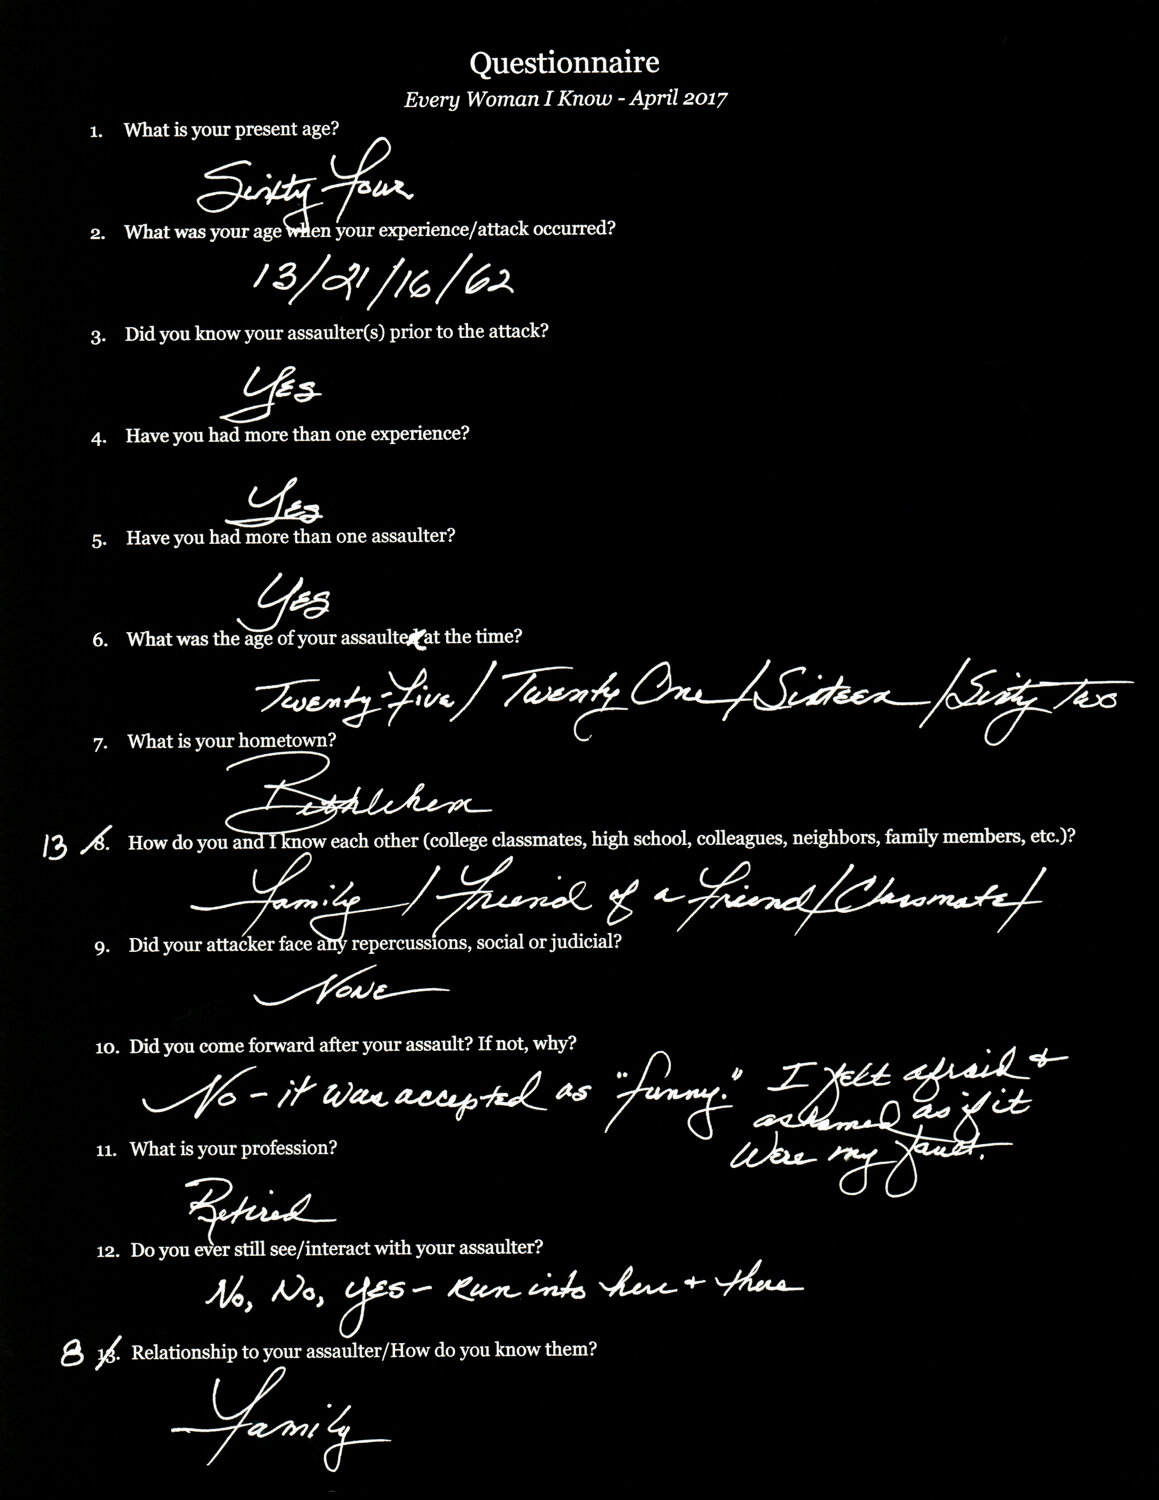 Questionnaire
Every Woman I Know - April 2017
1. What is your present age?
Sixty Four
2. What was your age when your experience/attack occurred?
13/21/16/62
3. Did you know your assaulter(s) prior to the attack?
Yes
4. Have you had more than one experience?
Yes
5. Have you had more than one assaulter?
Yes
6. What was the age of your assaulter at the time?
Twenty-Five/Twenty One/Sixteen/Sixty Two
7. What is your hometown?
Bethlehem
13 8. How do you and I know each other (college classmates, high school, colleagues, neighbors, family members, etc.)?
Family/Friend of a Friend/Classmate/
9. Did your attacker face any repercussions, social or judicial?
None
10. Did you come forward after your assault? If not, why?
No - it was accepted as "funny." I felt afraid +
ashamed as if it
were my fault.
11. What is your profession?
Retired
12. Do you ever still see/interact with your assaulter?
No, No, yes - Run into here + there
8 13. Relationship to your assaulter/How do you know them?
Family